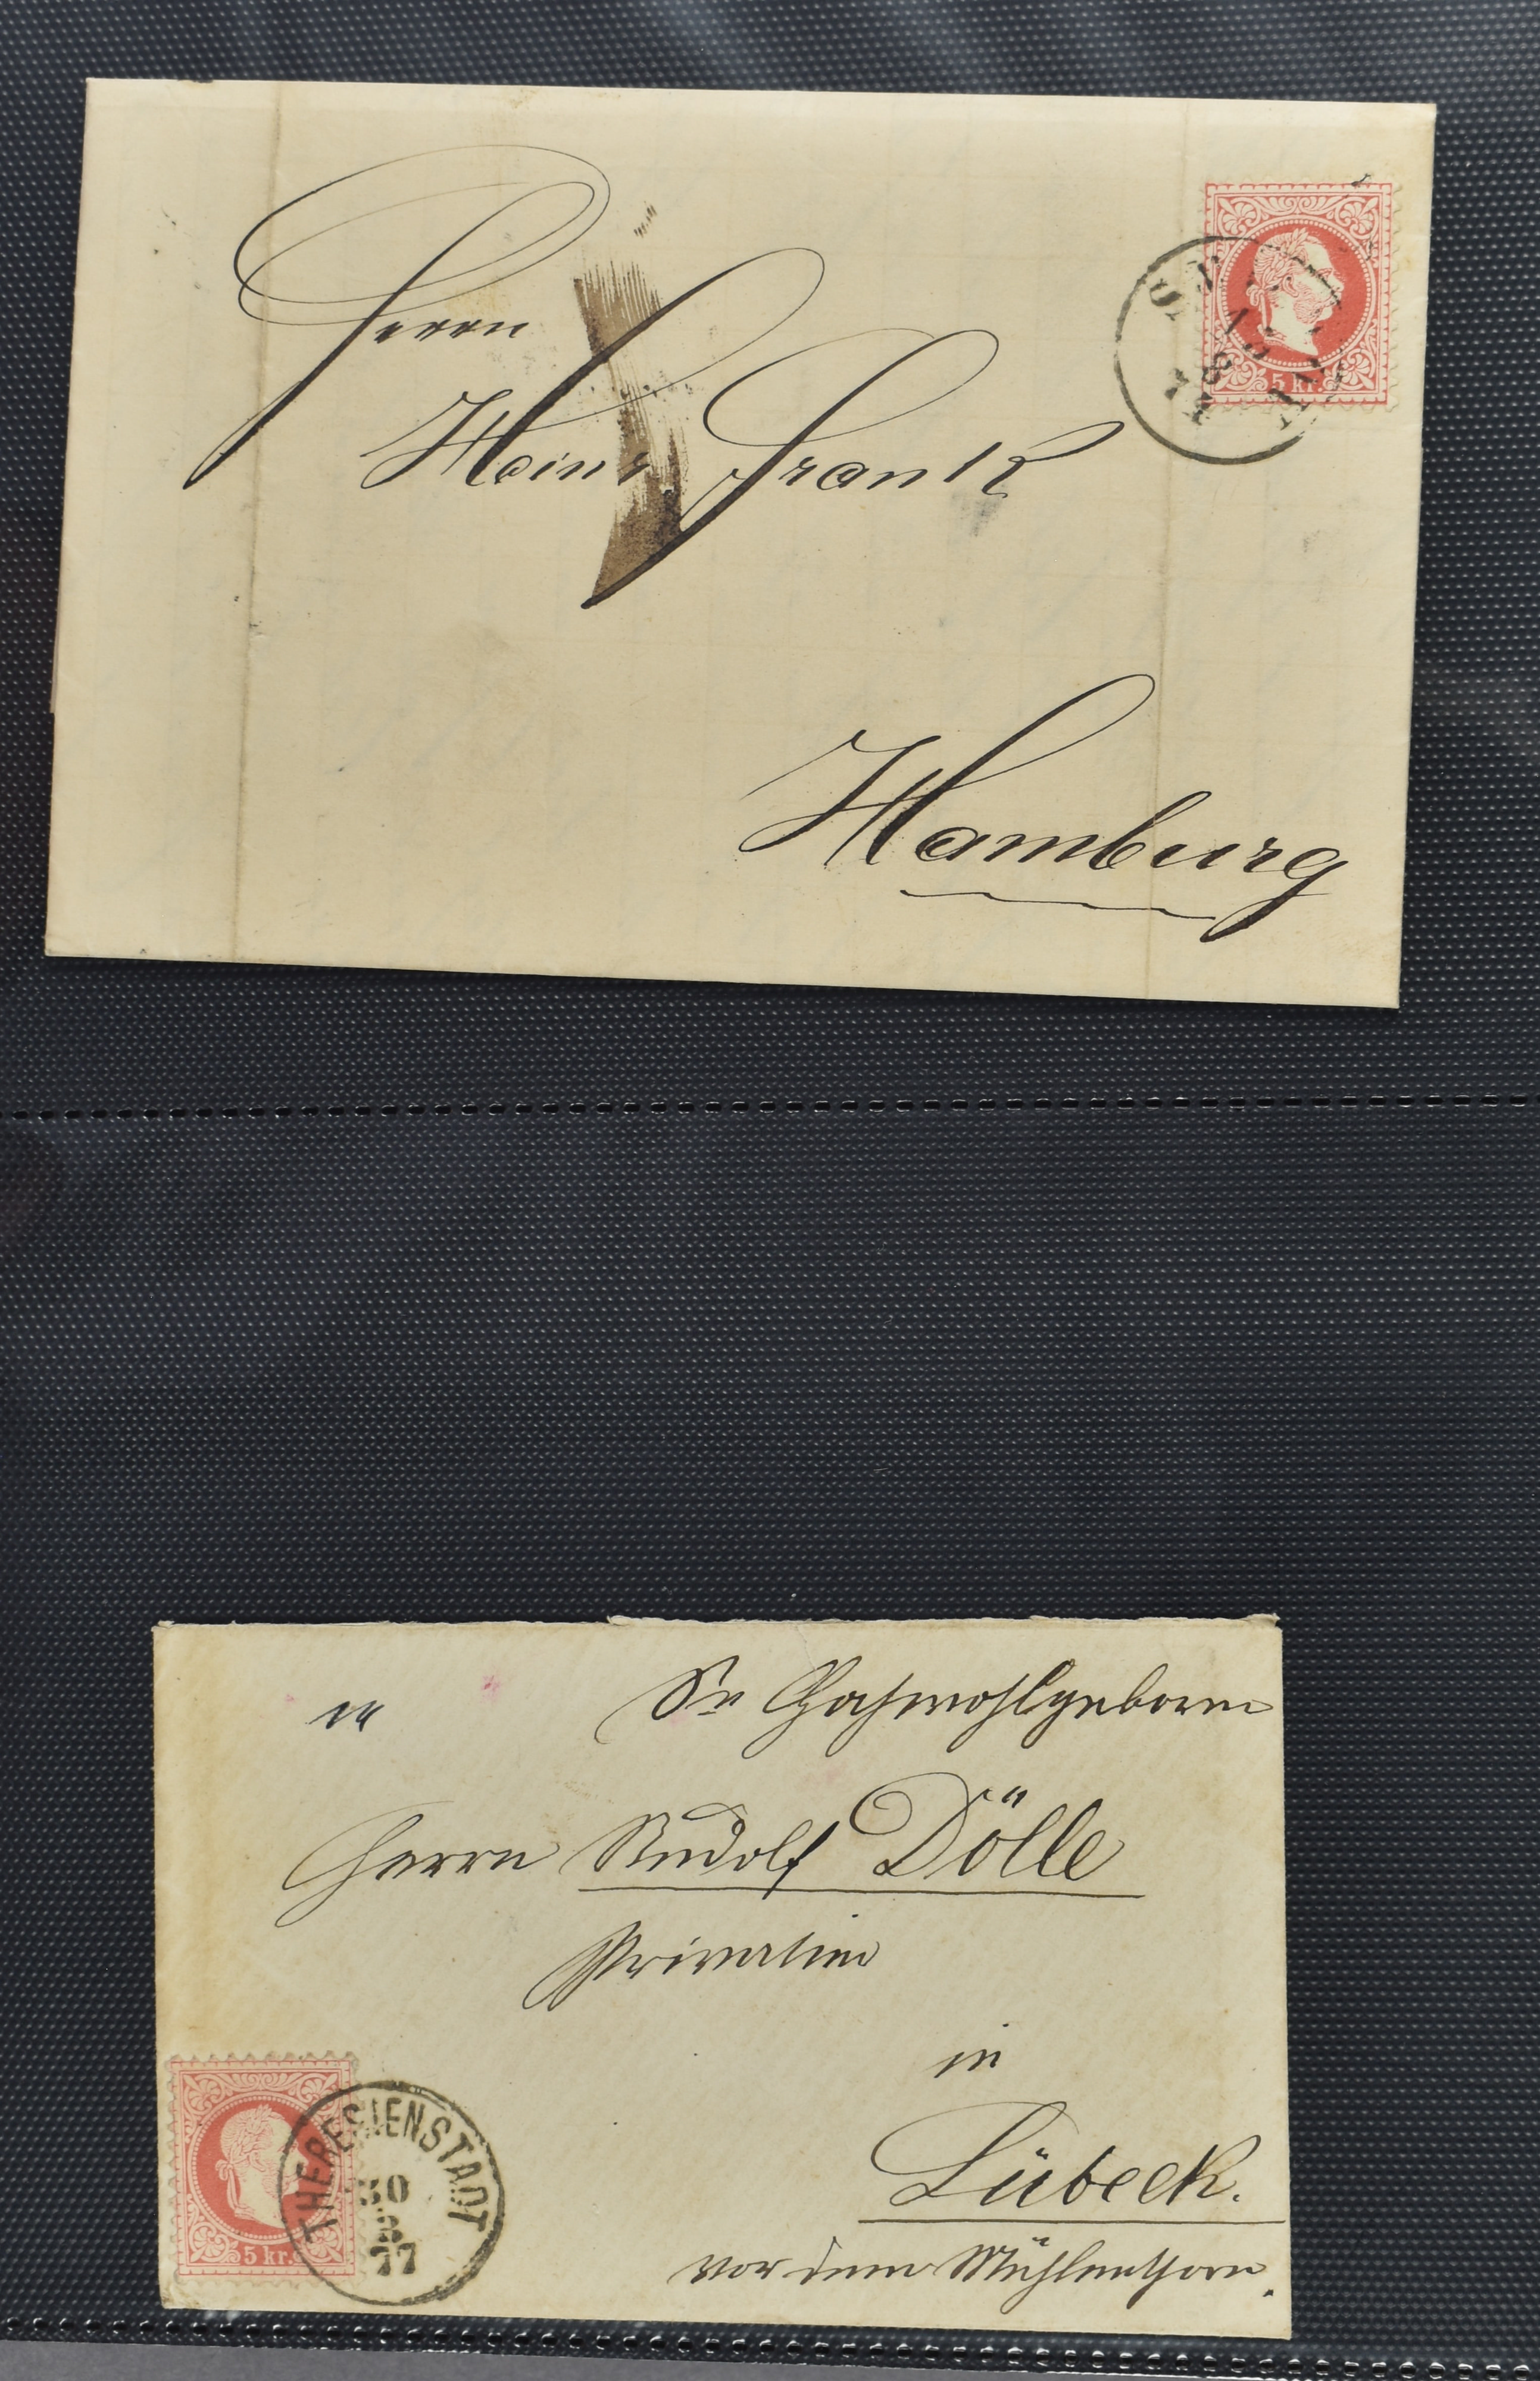 Herrn
Heinr Frank
Hamburg
5 kr.
74
Sr Hochwohlgeboren
Herrn Rudolf Dölle
Privatier
in
Lübeck.
vor dem Mühlenthore.
5 kr.
THERESIENSTADT
30
77